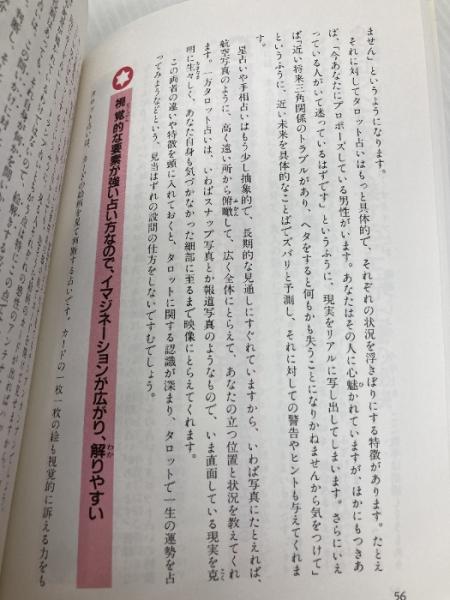 ません」というようになります。
それに対してタロット占いはもっと具体的で、それぞれの状況を浮きぼりにする特徴があります。たとえ
ば、「今あなたにプロポーズしている男性がいます。あなたはその人に心魅かれていますが、ほかにもつきあ
っている人がいて迷っているはずです」というふうに、現実をリアルに写し出してしまいます。さらにいえ
ば「近い将来三角関係のトラブルがあり、ヘタをすると何もかも失うことになりかねませんから気をつけて」
というふうに、近い未来を具体的なことばでズバリと予測し、それに対しての警告やヒントも与えてくれま
す。
星占いや手相占いはもう少し抽象的で、長期的な見通しにすぐれていますから、いわば写真にたとえれば、
航空写真のように、高く遠い所から俯瞰して、広く全体にとらえて、あなたの立つ位置と状況を教えてくれ
ます。一方タロット占いは、いわばスナップ写真とか報道写真のようなもので、いま直面している現実を克
明に生々しく、あなた自身も気づかなかった細部に至るまで映像にとらえてくれます。
この両者の違いや特徴を頭に入れておくと、タロットに関する認識が深まり、タロットで一生の運勢を占
ってみようなどという、見当はずれの設問の仕方をしないですむでしょう。
視覚的な要素が強い占い方なので、イマジネーションが広がり、解りやすい
の絵を見て判断する占いです。カードの一枚一枚の絵も視覚的に訴える力をも
56